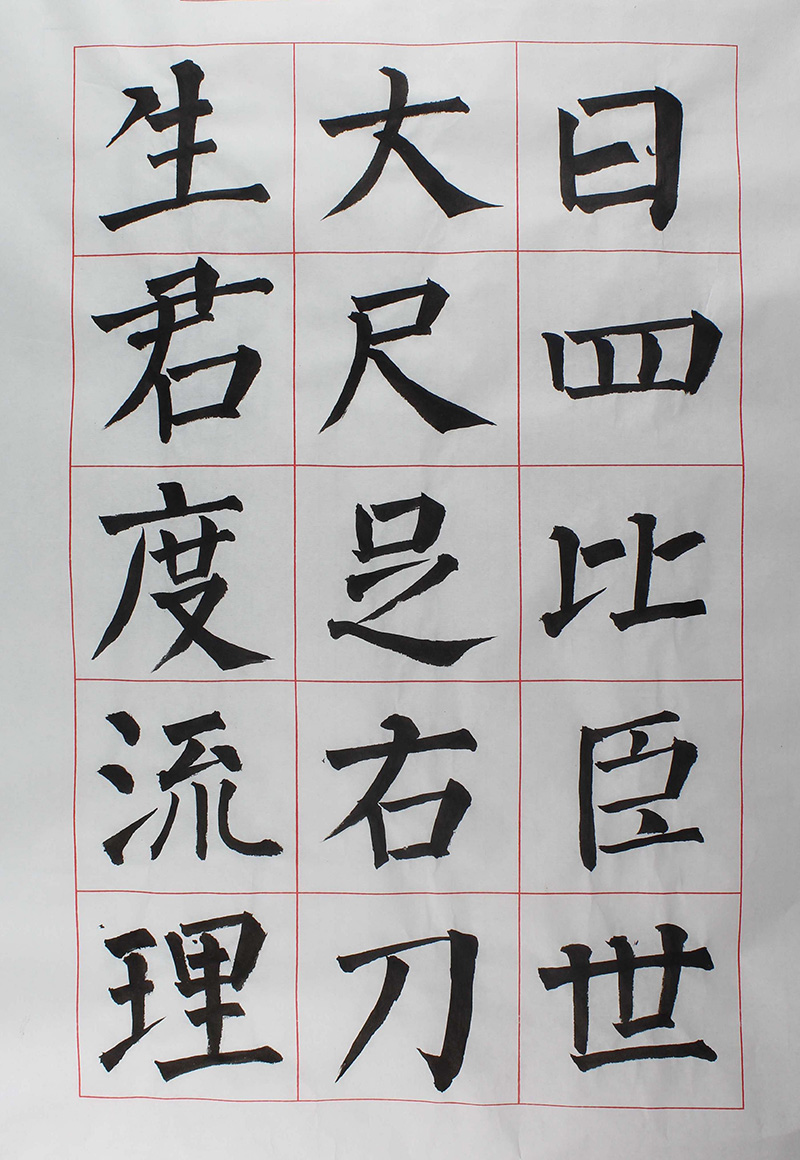 曰四比臣世
大尺足右刀
生君度流理